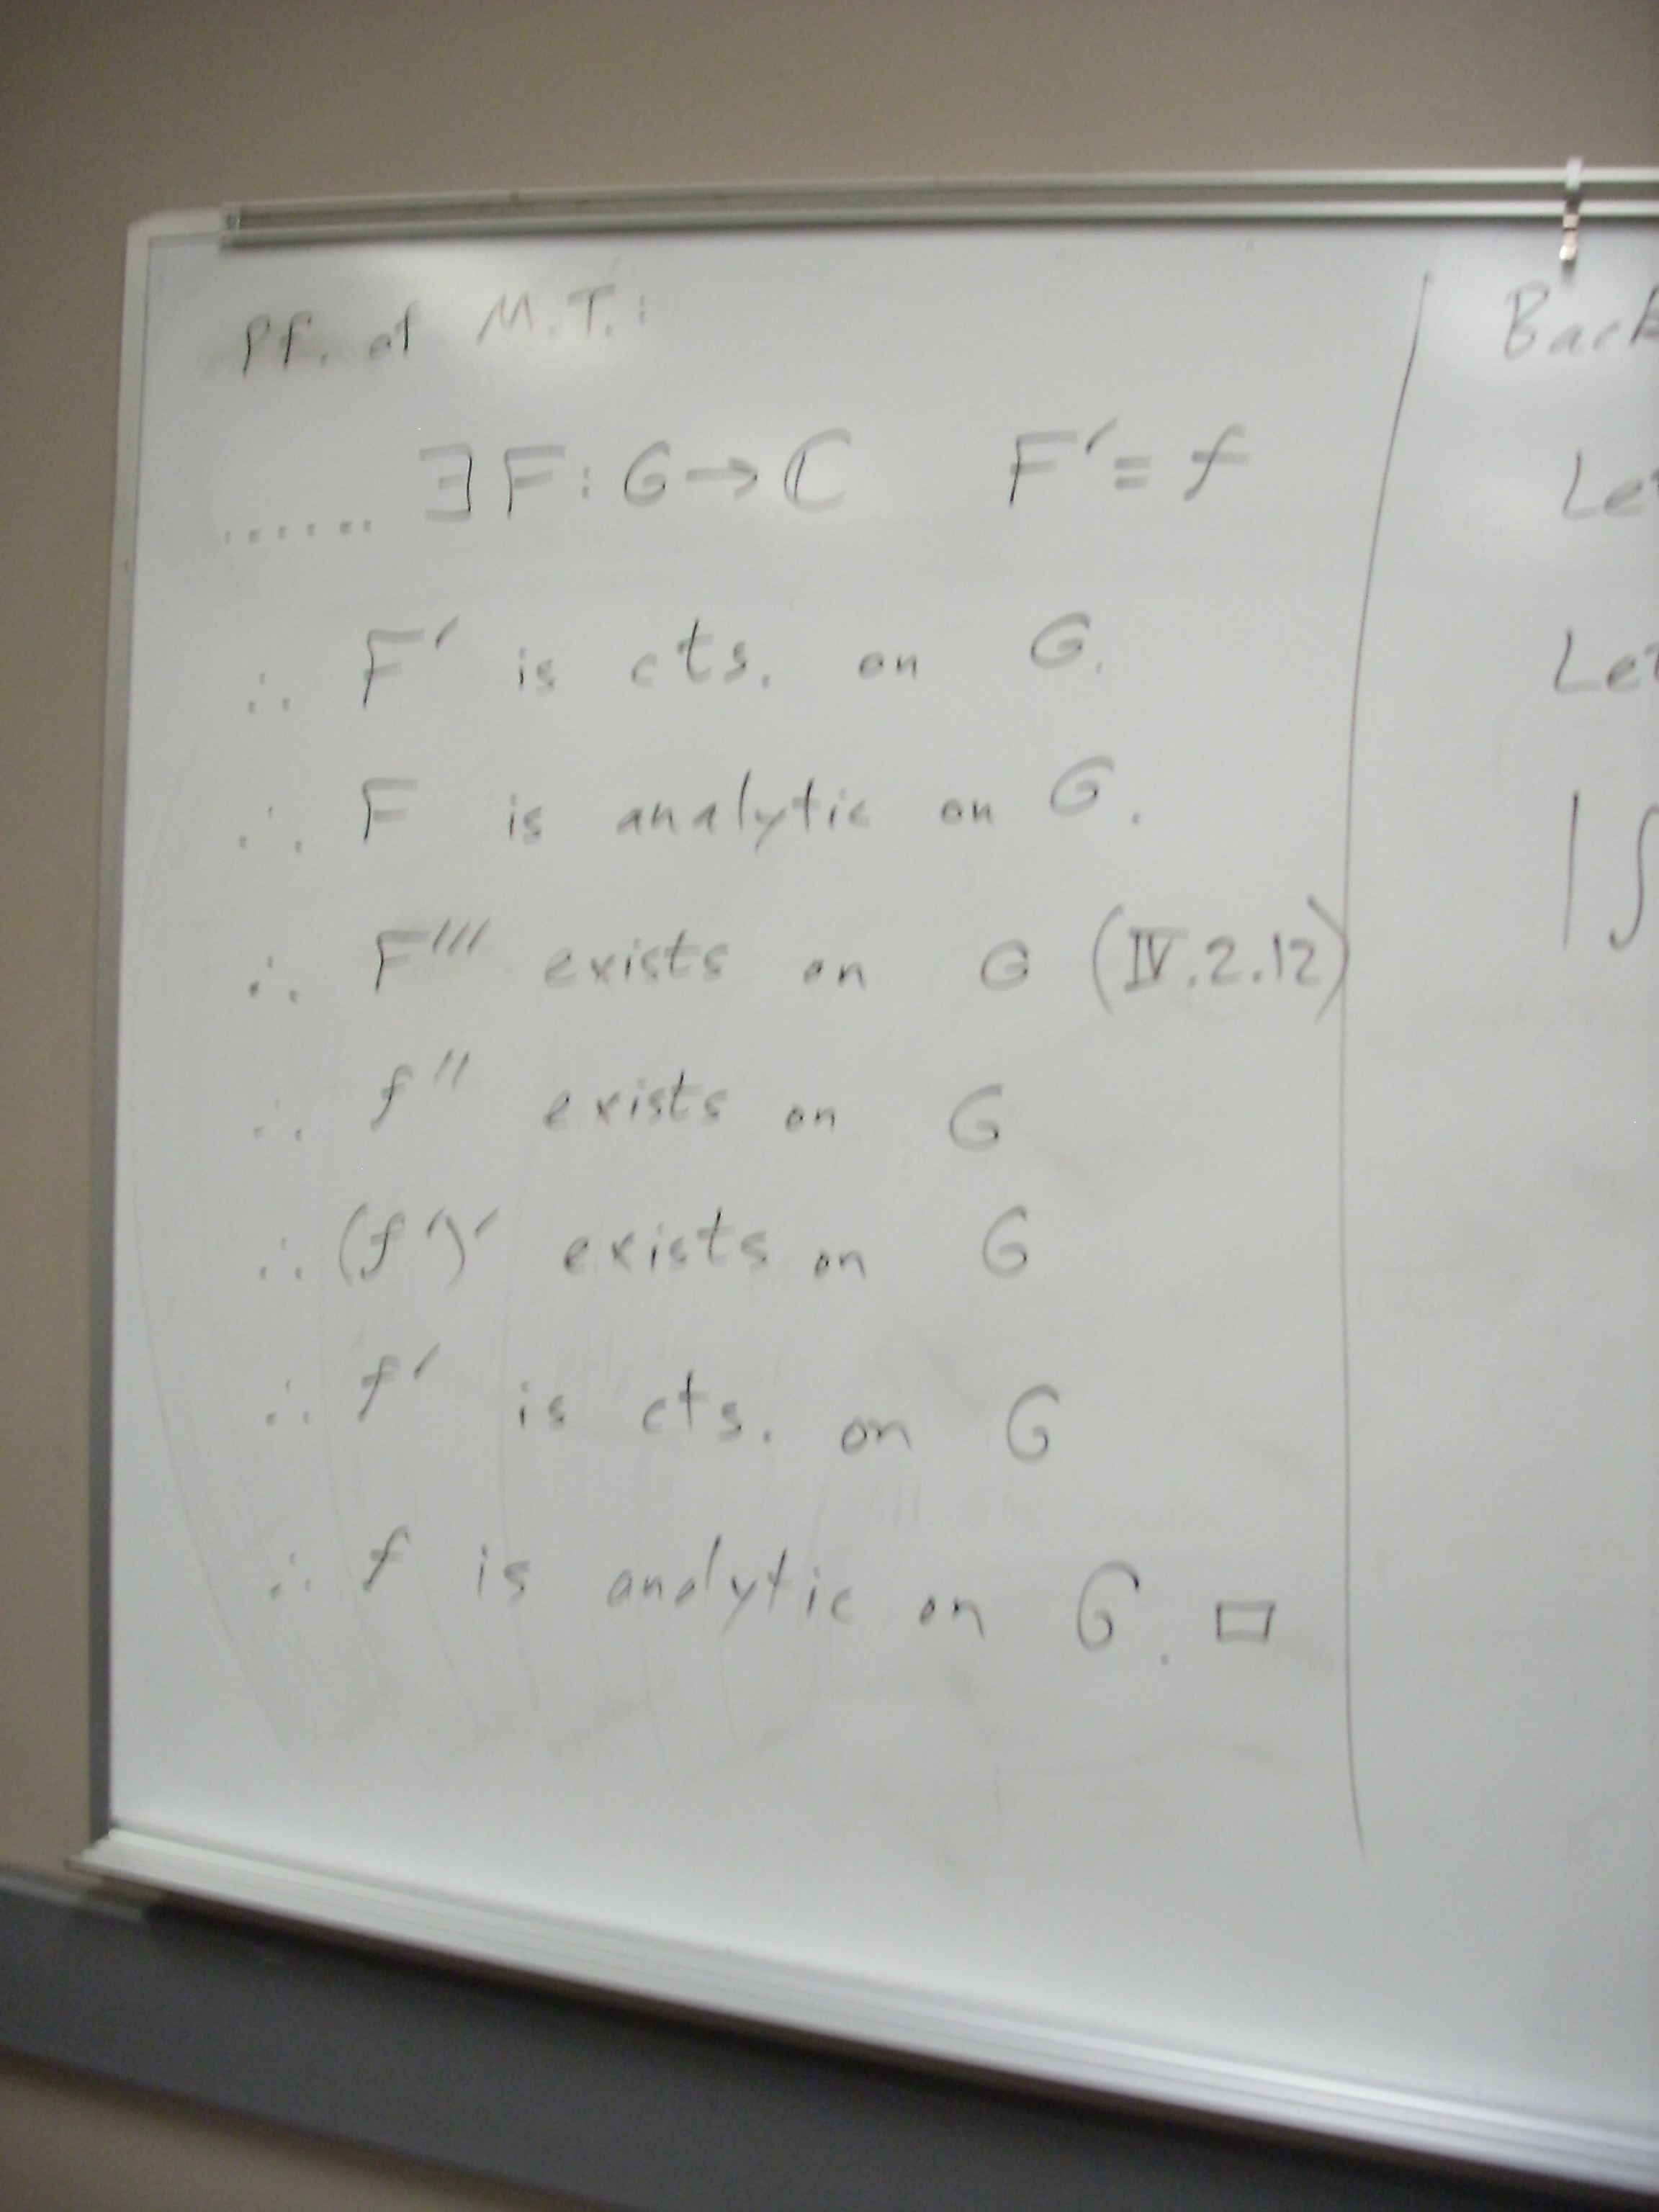 Pf. of M.T.:
...... ∃ F: G → ℂ F′ = f
∴ F′ is cts. on G.
∴ F is analytic on G.
∴ F‴ exists on G (IV.2.12)
∴ f″ exists on G
∴ (f′)′ exists on G
∴ f′ is cts. on G
∴ f is analytic on G. □
Back
Let
Let
|∫